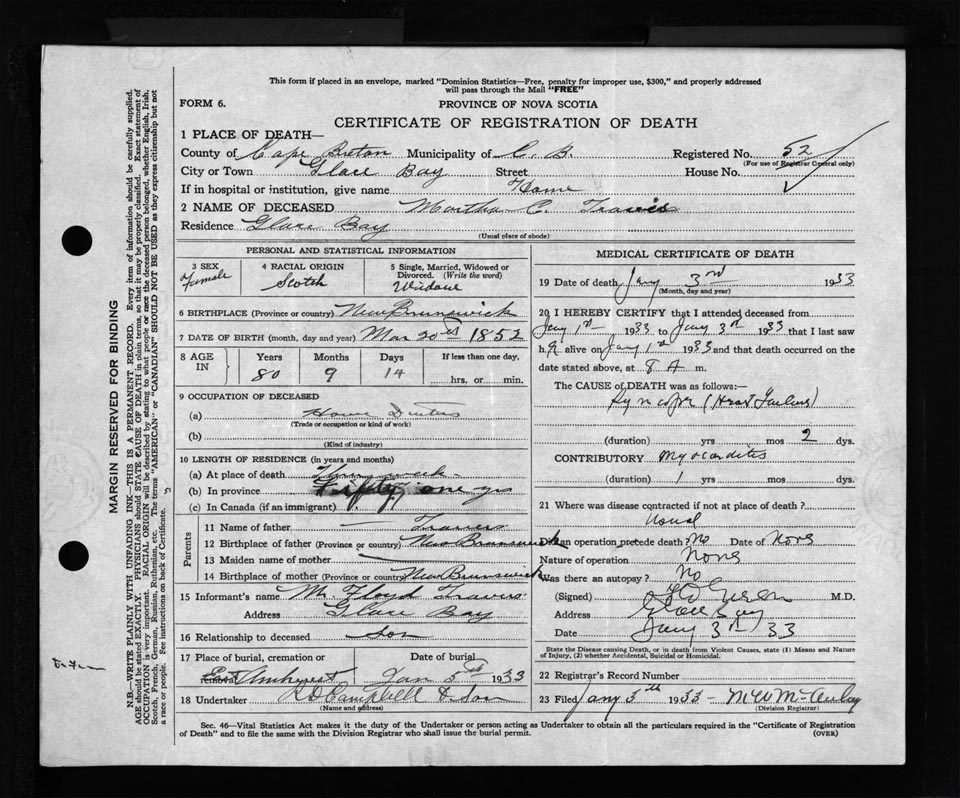 This form if placed in an envelope, marked "Dominion Statistics—Free, penalty for improper use, $300," and properly addressed
will pass through the Mail "FREE"
FORM 6.
PROVINCE OF NOVA SCOTIA
CERTIFICATE OF REGISTRATION OF DEATH
1 PLACE OF DEATH—
County of Cape Breton Municipality of C. B. Registered No. 52
(For use of Registrar General only)
City or Town Glace Bay Street House No.
If in hospital or institution, give name Home
2 NAME OF DECEASED Martha C. Travis
Residence Glace Bay
(Usual place of abode)
PERSONAL AND STATISTICAL INFORMATION
3 SEX Female
4 RACIAL ORIGIN Scotch
5 Single, Married, Widowed or Divorced. (Write the word)
6 BIRTHPLACE (Province or country) New Brunswick
7 DATE OF BIRTH (month, day and year) Mar 20 1852
8 AGE IN Years Months Days If less than one day,
80 9 14 hrs. or min.
9 OCCUPATION OF DECEASED
(a) House Duties
(Trade or occupation or kind of work)
(b)
(Kind of industry)
10 LENGTH OF RESIDENCE (in years and months)
(a) At place of death week
(b) In province Fifty one yrs
(c) In Canada (if an immigrant)
Parents
11 Name of father Travis
12 Birthplace of father (Province or country) New Brunswick
13 Maiden name of mother
14 Birthplace of mother (Province or country) New Brunswick
15 Informant's name M. Floyd Travis
Address Glace Bay
16 Relationship to deceased Son
17 Place of burial, cremation or Date of burial
Amhurst Jan 5th 1933
18 Undertaker Campbell & Son
(Name and address)
MEDICAL CERTIFICATE OF DEATH
19 Date of death Jany 3rd 1933
(Month, day and year)
20 I HEREBY CERTIFY that I attended deceased from
Jany 1st 1933 to Jany 3rd 1933 that I last saw
h alive on Jany 1st 1933 and that death occurred on the
date stated above, at 8 A. m.
The CAUSE OF DEATH was as follows:—
Syncope (Heart Failure)
(duration) yrs mos 2 dys.
CONTRIBUTORY Myocarditis
(duration) 1 yrs mos dys.
21 Where was disease contracted if not at place of death?
Did an operation precede death? No Date of None
Nature of operation None
Was there an autopsy? No
(Signed) M.D.
Address Glace Bay
Date Jany 3rd 33
State the Disease causing Death, or in death from Violent Causes, state (1) Means and Nature of Injury, (2) whether Accidental, Suicidal or Homicidal.
22 Registrar's Record Number
23 Filed Jany 3th 1933 M W McAulay
(Division Registrar)
Sec. 46—Vital Statistics Act makes it the duty of the Undertaker or person acting as Undertaker to obtain all the particulars required in the "Certificate of Registration
of Death" and to file the same with the Division Registrar who shall issue the burial permit.
(OVER)
MARGIN RESERVED FOR BINDING
N.B.—WRITE PLAINLY WITH UNFADING INK—THIS IS A PERMANENT RECORD. Every item of information should be carefully supplied.
AGE should be stated EXACTLY. PHYSICIANS should STATE CAUSE OF DEATH in plain terms, so that it may be properly classified. Exact statement of
OCCUPATION is very important. RACIAL ORIGIN will be described by stating to what people or race the deceased person belonged, whether English, Irish,
Scotch, French, German, Russian, Ruthenian, etc. The terms "AMERICAN" or "CANADIAN" SHOULD NOT BE USED as they express citizenship but not
a race or people. See instructions on back of Certificate.